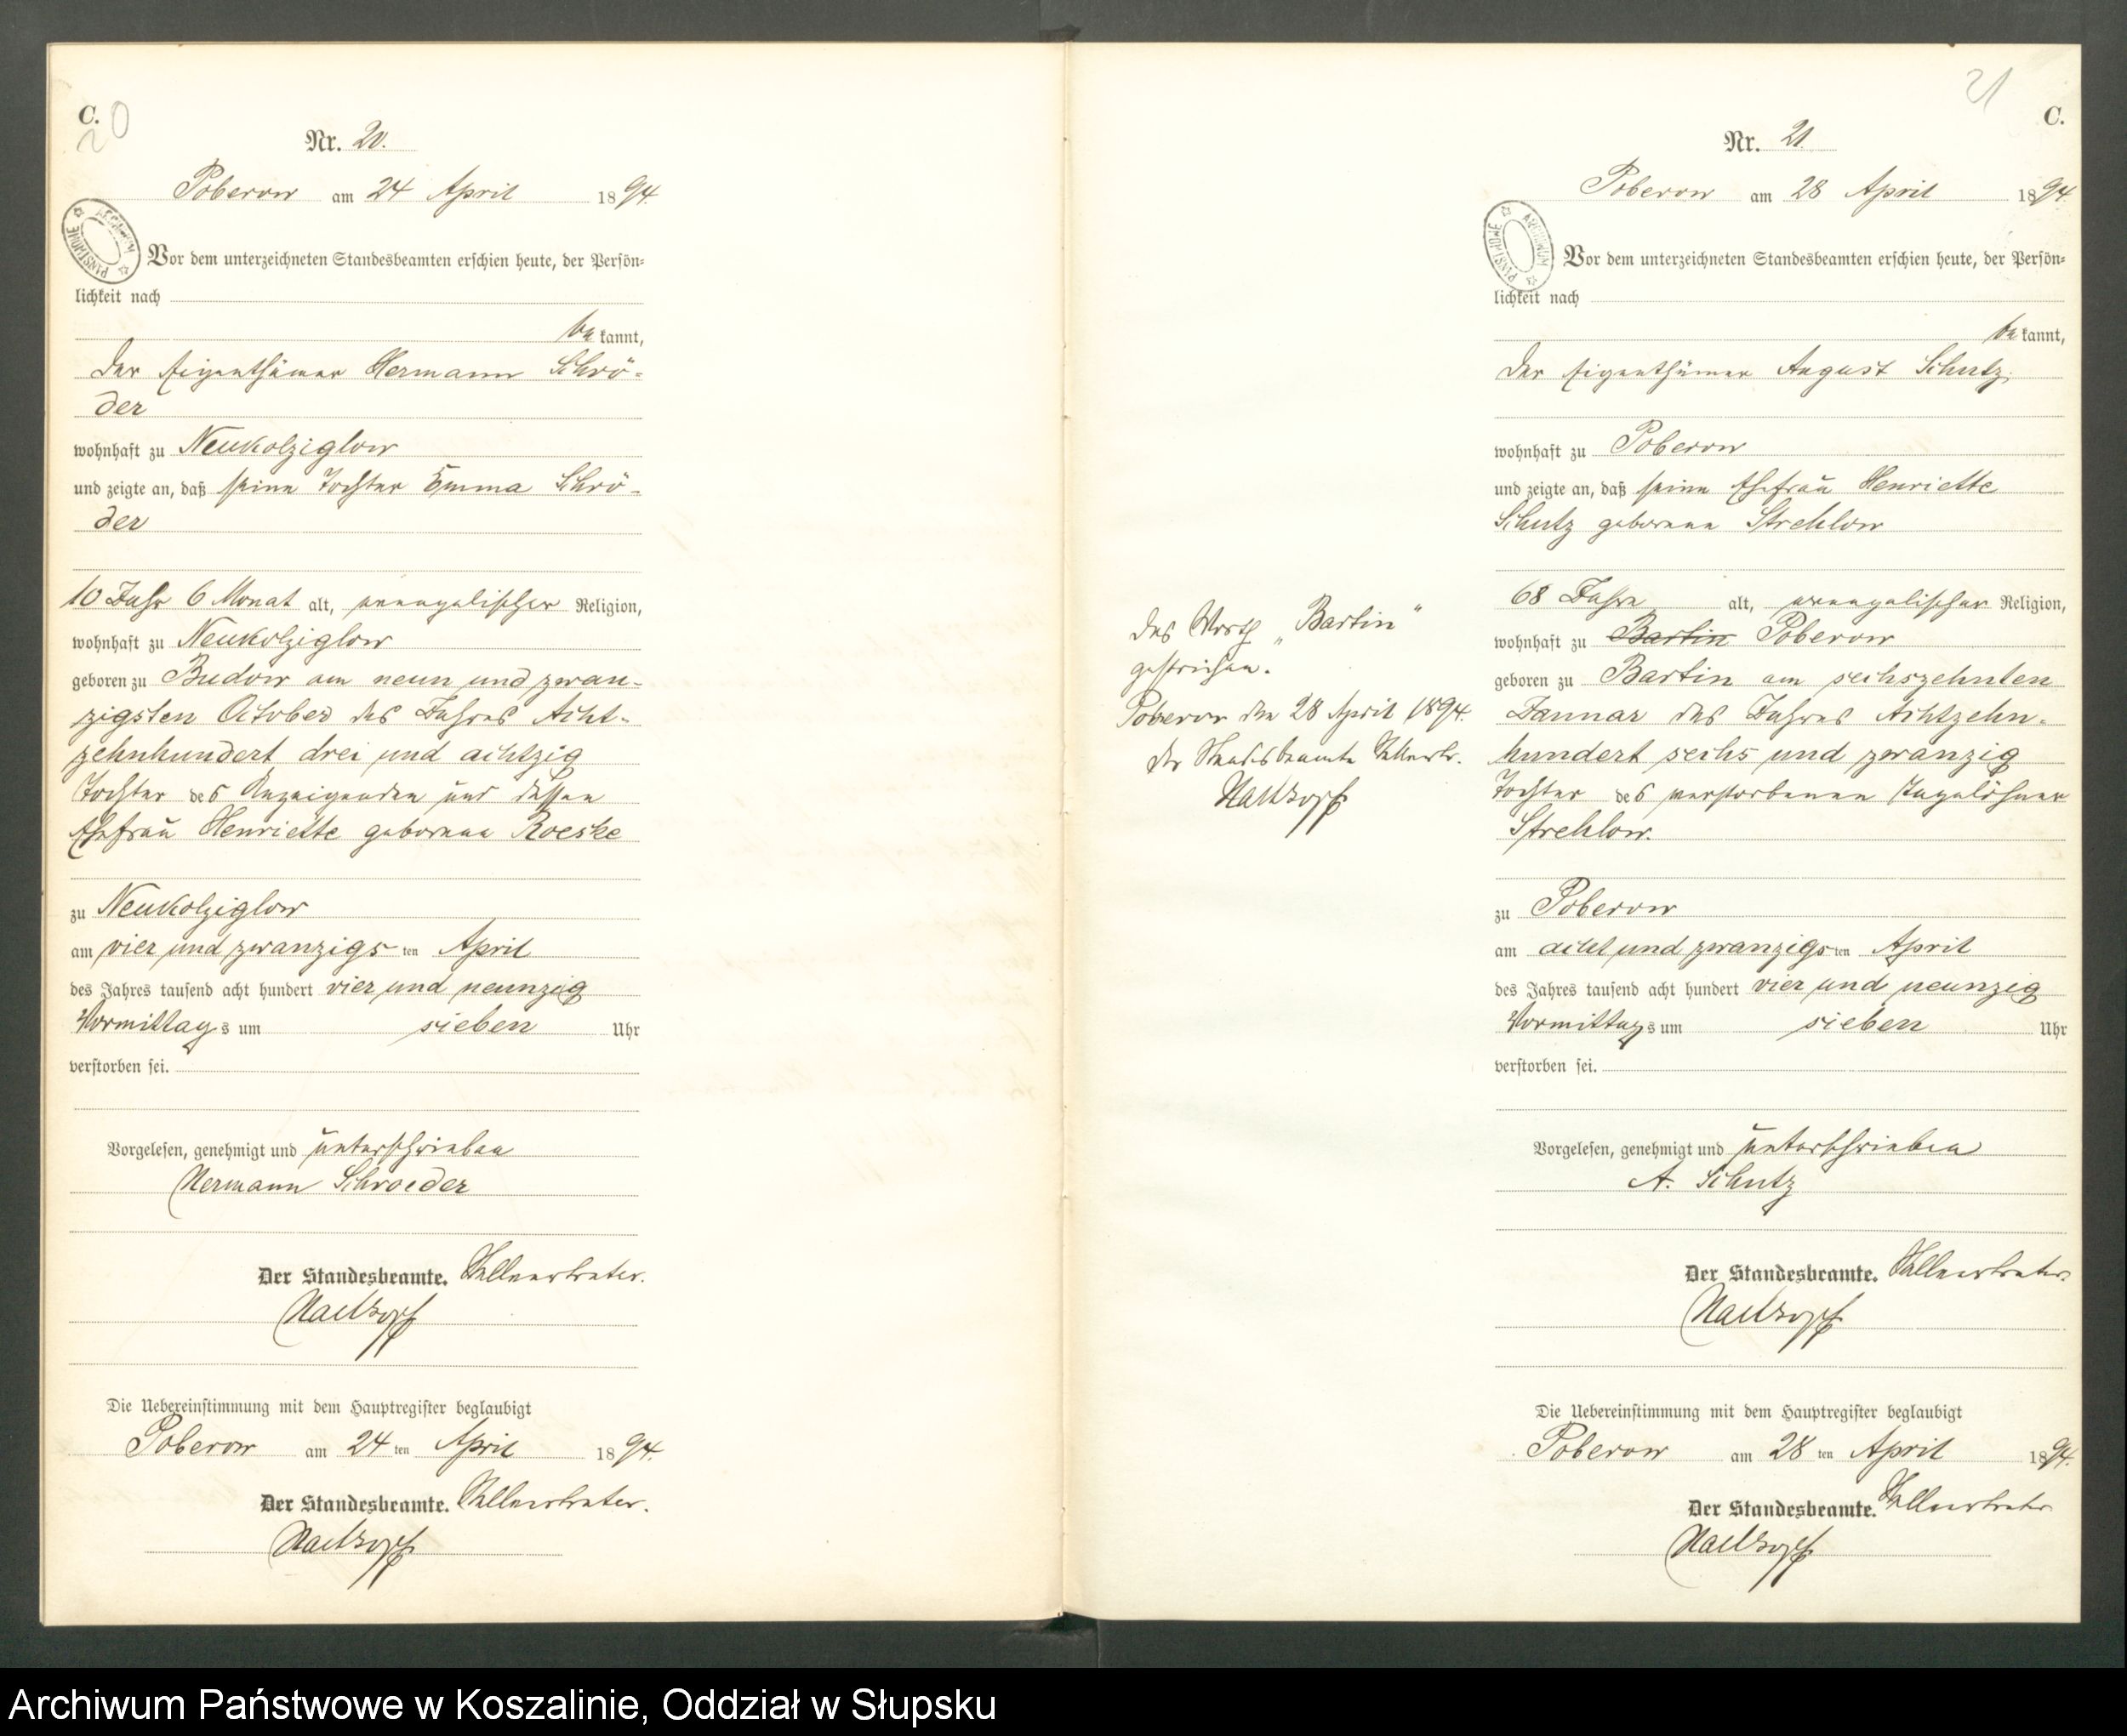 C.
20
Nr. 20.
Poberow am 24 April 1894.
ARCHIWUM PAŃSTWOWE
Vor dem unterzeichneten Standesbeamten erschien heute, der Persön=
lichkeit nach
bekannt,
der Eigenthümer Hermann Schrö=
der
wohnhaft zu Neukolziglow
und zeigte an, daß seine Tochter Emma Schrö=
der
10 Jahr 6 Monat alt, evangelischer Religion,
wohnhaft zu Neukolziglow
geboren zu Budow am neun und zwan=
zigsten October des Jahres Acht=
zehnhundert drei und achtzig
Tochter des Anzeigenden und dessen
Ehefrau Henriette geborene Roeske
zu Neukolziglow
am vier und zwanzigsten April
des Jahres tausend acht hundert vier und neunzig
Vormittags um sieben Uhr
verstorben sei.
Vorgelesen, genehmigt und unterschrieben
Hermann Schroeder
Der Standesbeamte. Stellvertreter.
Hackbopf
Die Uebereinstimmung mit dem Hauptregister beglaubigt
Poberow am 24ten April 1894.
Der Standesbeamte. Stellvertreter.
21
C.
Nr. 21
Poberow am 28 April 1894.
ARCHIWUM PAŃSTWOWE
Vor dem unterzeichneten Standesbeamten erschien heute, der Persön=
lichkeit nach
bekannt,
der Eigenthümer August Schutz
wohnhaft zu Poberow
und zeigte an, daß seine Ehefrau Henriette
Schutz geborene Strehlow
68 Jahre alt, evangelischer Religion,
wohnhaft zu Bartin Poberow
geboren zu Bartin am sechszehnten
Januar des Jahres Achtzehn=
hundert sechs und zwanzig
Tochter des verstorbenen Tagelöhner
Strehlow.
zu Poberow
am acht und zwanzigsten April
des Jahres tausend acht hundert vier und neunzig
Vormittags um sieben Uhr
verstorben sei.
Vorgelesen, genehmigt und unterschrieben
A. Schutz
Der Standesbeamte. Stellvertreter.
Die Uebereinstimmung mit dem Hauptregister beglaubigt
Poberow am 28ten April 1894.
Der Standesbeamte. Stellvertreter
das Worth „Bartin"
gestrichen.
Poberow den 28 April 1894.
der Standesbeamte Stellvertr.
Archiwum Państwowe w Koszalinie, Oddział w Słupsku